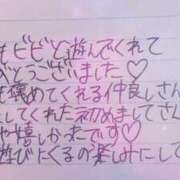 もビビと遊んでくれて
がとうございました♡
も褒めてくれる仲良しさん
してくれた初めましてさん
や嬉しかったです♡
遊びにくるの楽しみにして